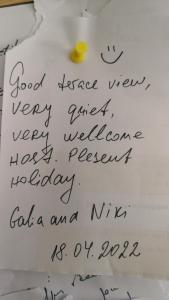 Good terace view,
very quiet,
very wellcome
HOST. Plesent
Holiday.
Gabia and Niki
18.04.2022